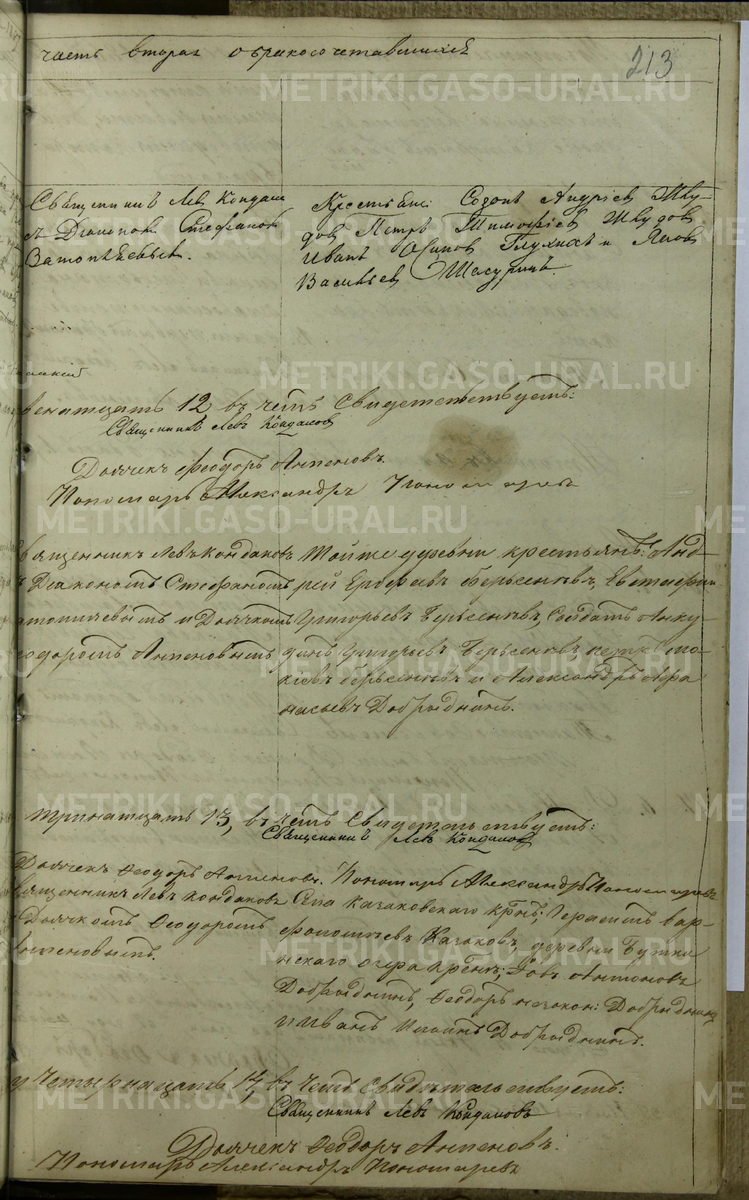 часть вторая о бракосочетавшихся
213
METRIKI.GASO-URAL.RU
Священникъ Левъ Кондако
Діаконъ Стефанов
Затопляевъ.
Крестьяне: Созонъ Андріев Шву-
довъ Петръ Тимофіев Швудов
Иванъ Осипов Глухихъ и Яков
Васильев Шасуринъ.
METRIKI.GASO-URAL.RU
венатцать 12, въ чемъ Свидетельствуетъ:
Священникъ Левъ Кондаковъ
Дьячекъ Феодоръ Антеновъ.
Пономарь Александръ Пономаревъ
METRIKI.GASO-URAL.RU
вященникъ Левъ Кондаковъ
Діакономъ Стефаномъ
и Дьячкомъ
еодоромъ Антеновымъ
Тойже деревни крестьянъ: Анд-
рей Ерофеевъ Берсеневъ, Евстафій
Григорьевъ Берсеневъ, Солдатъ Анку-
динъ Григорьев Берсеневъ
Берсеневъ и Александръ Афа
насьевъ Добрыднинъ.
METRIKI.GASO-URAL.RU
тринатцать 13, въ чемъ Свидетельствуетъ:
Священникъ Левъ Кондаковъ
Дьячекъ Феодоръ Антеновъ. Пономарь Александръ Пономаревъ
вященникъ Левъ Кондаковъ
Дьячкомъ Феодоромъ
Антеновымъ.
Села Казаковскаго крнъ; Герасимъ Вар-
фоломеевъ Казаковъ, деревни Бутки
нскаго озера крнъ; Іовъ Антоновъ
Добрыднинъ, Феодоръ незакон: Добрыднинъ
и Иванъ Добрыднинъ.
METRIKI.GASO-URAL.RU
Четырнадцать 14, въ чемъ Свидетельствуетъ:
Священникъ Левъ Кондаковъ
Дьячекъ Феодоръ Антеновъ.
Пономарь Александръ Пономаревъ